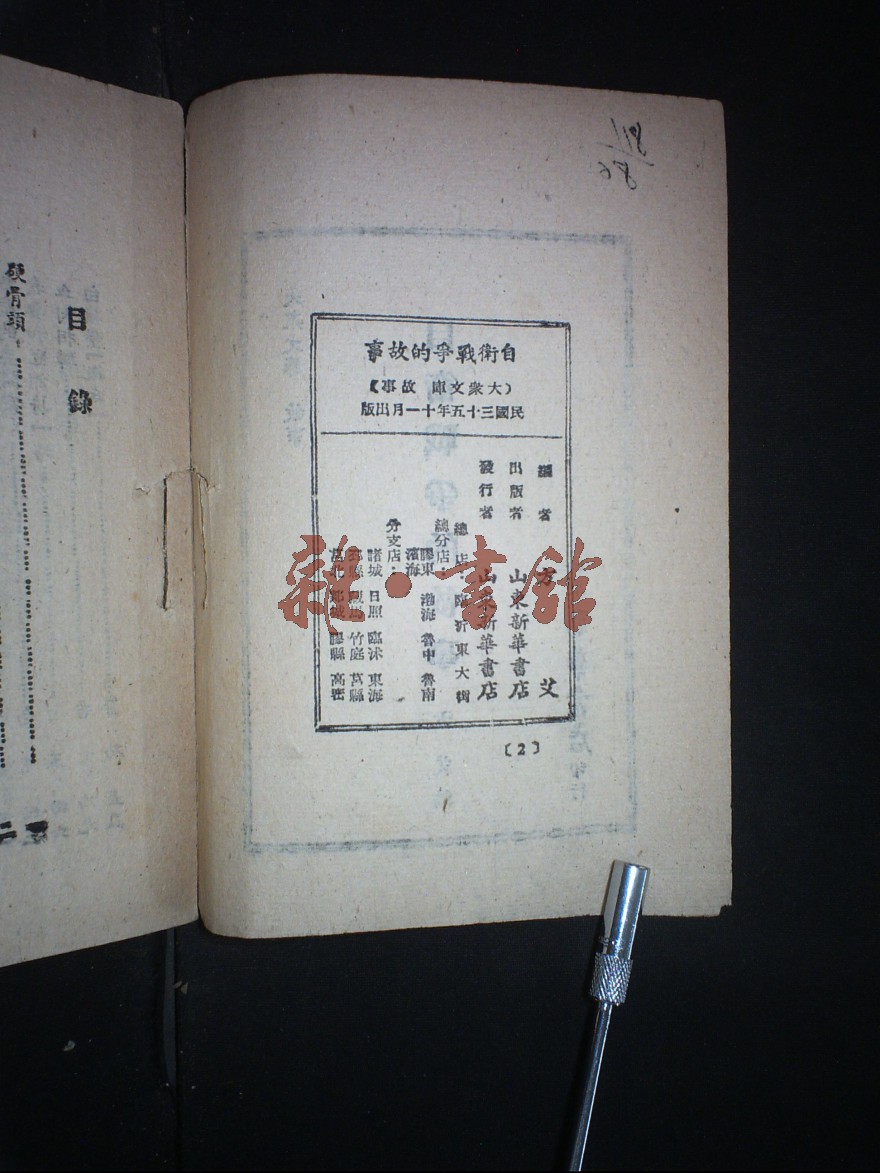 118
86
自衛戰爭的故事
(大衆文庫 故事)
民國三十五年十一月出版
編者 方艾
出版者 山東新華書店
發行者 山東新華書店
總店 臨沂東大街
總分店：
膠東 渤海 魯中 魯南
濱海
分支店：
諸城 日照 臨沭 東海
竹庭 莒縣
莒北 郯城 膠縣 高密
〔2〕
目錄
硬骨頭
雜·書館